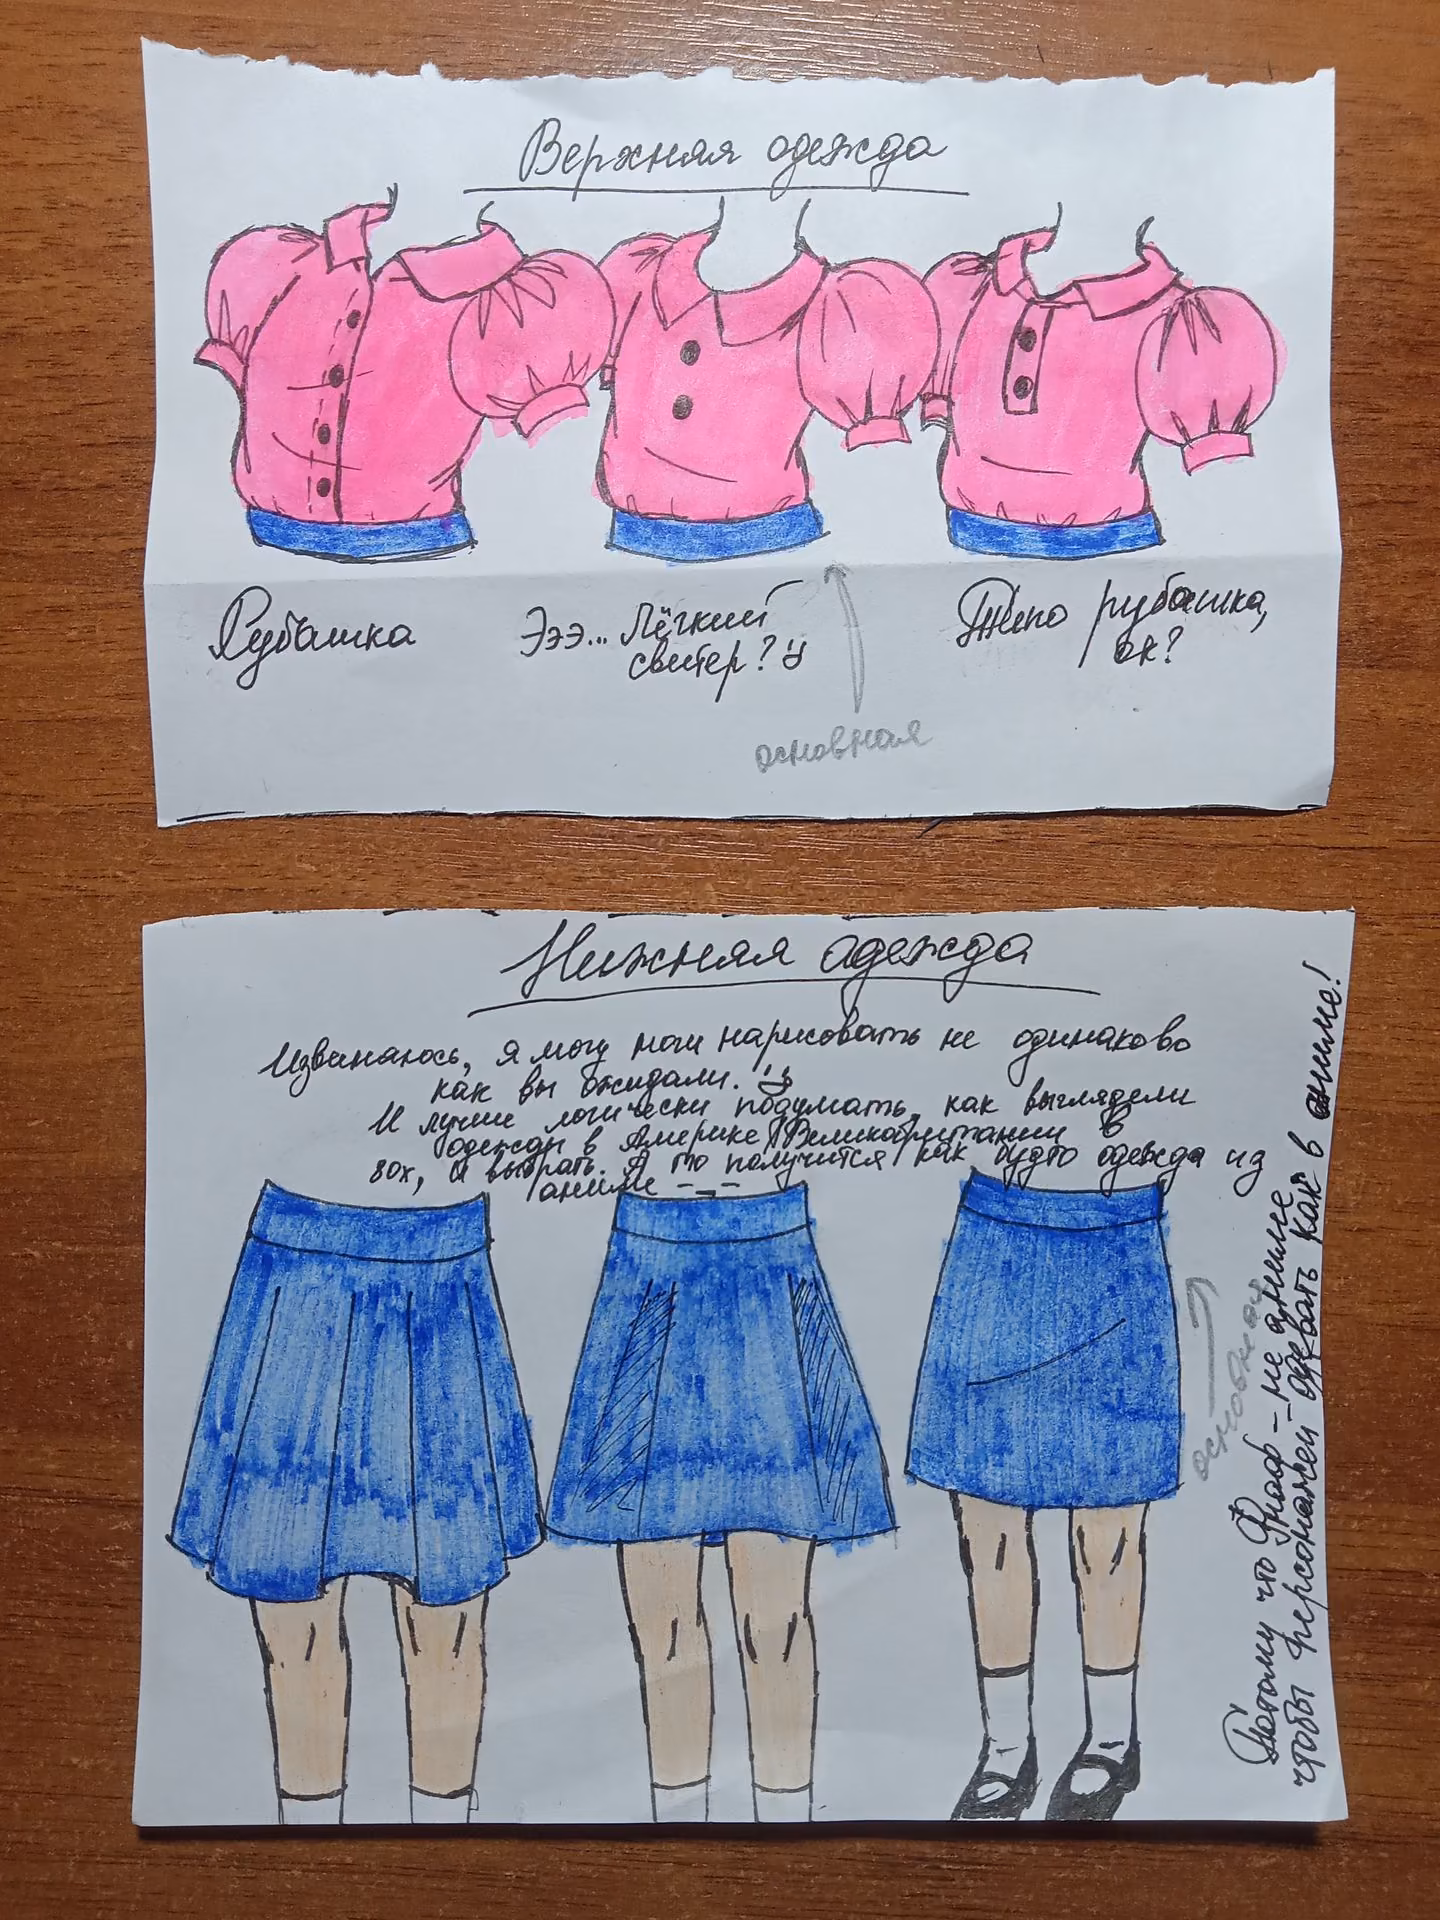 Верхняя одежда
Рубашка
Эээ... Лёгкий
свитер?
Типо рубашка,
ок?
основная
Нижняя одежда
Извиняюсь, я могу нарисовать не одинаково
как вы ожидали.
И лучше логически подумать, как выглядели
одежды в Америке/Великобритании в
80х, и выбрать. А то получится как будто одежда из
аниме -_-
основная
Потому что Фнаф - не аниме
чтобы персонажей одевать как в аниме!